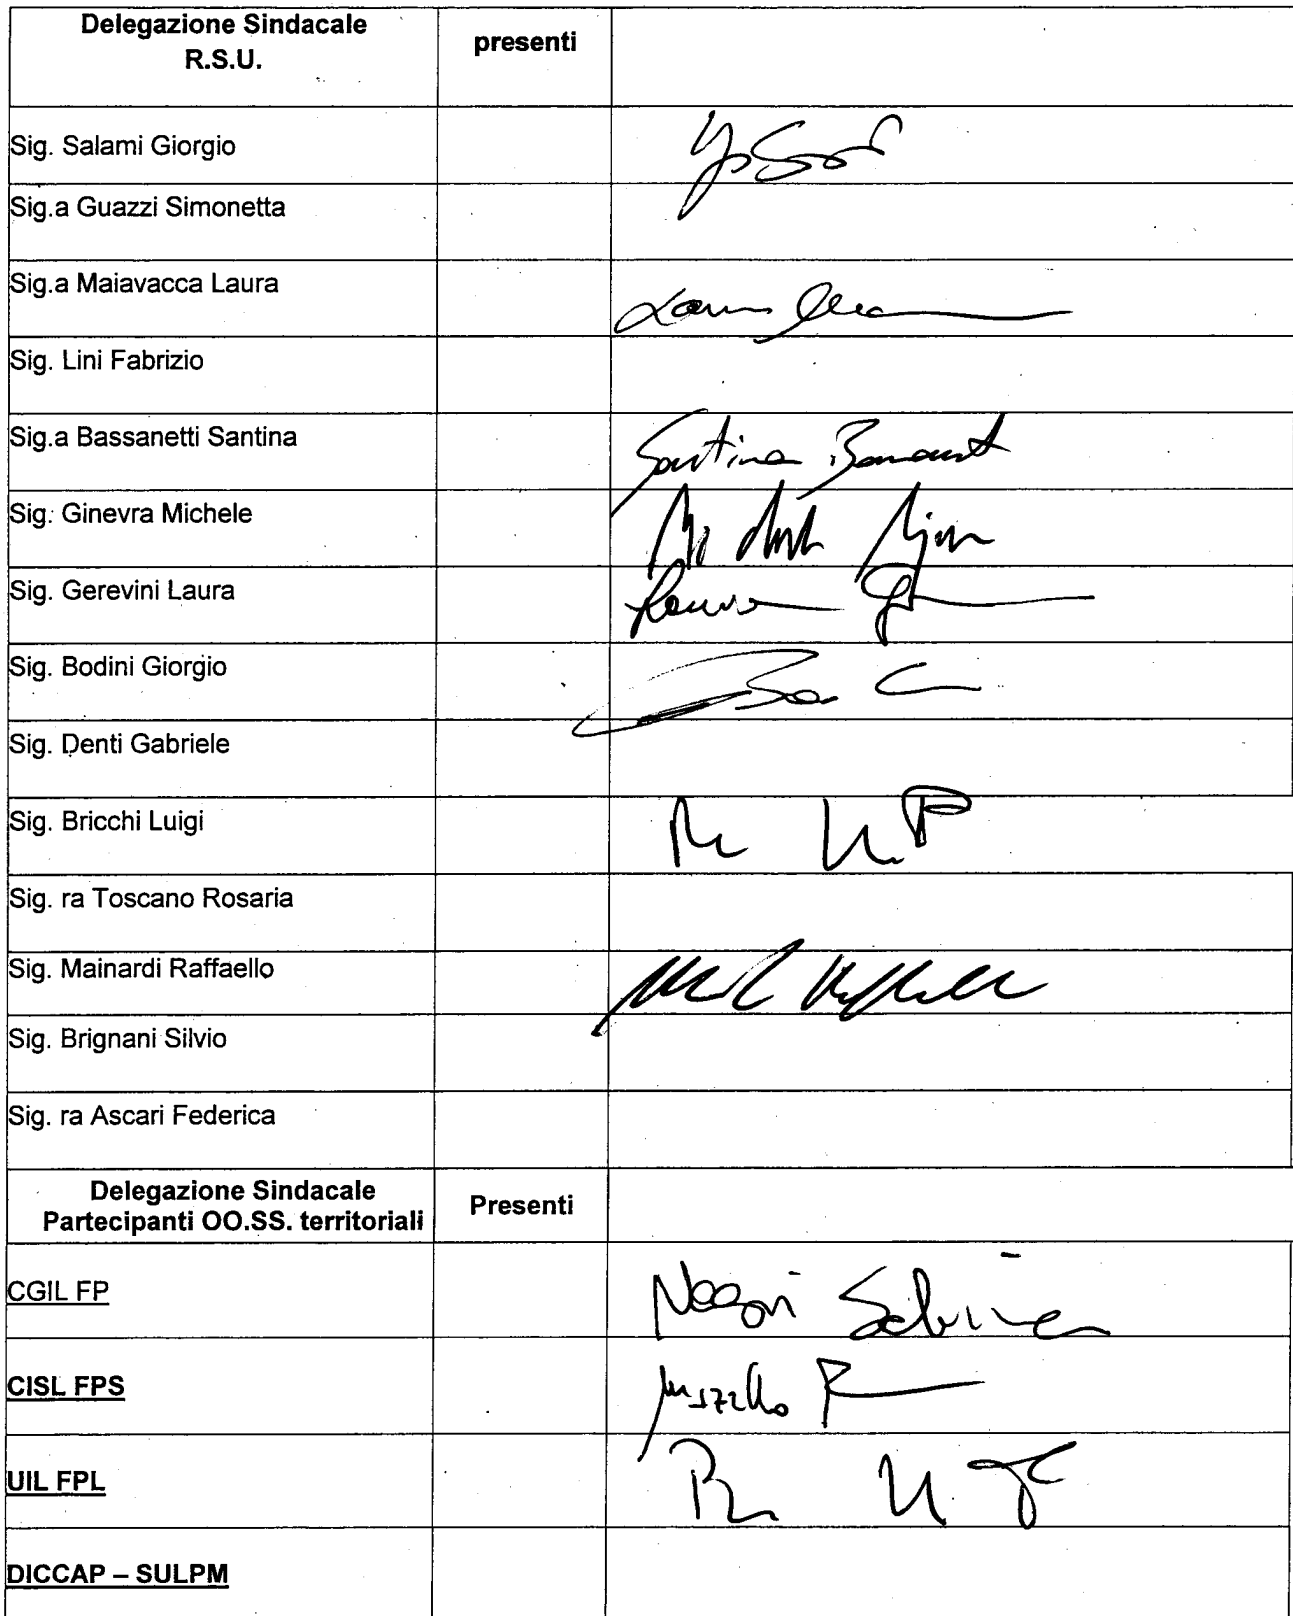 Delegazione Sindacale
R.S.U.
presenti
Sig. Salami Giorgio
Sig.a Guazzi Simonetta
Sig.a Maiavacca Laura
Sig. Lini Fabrizio
Sig.a Bassanetti Santina
Santina
Sig. Ginevra Michele
Sig. Gerevini Laura
Sig. Bodini Giorgio
Sig. Denti Gabriele
Sig. Bricchi Luigi
Sig. ra Toscano Rosaria
Sig. Mainardi Raffaello
Sig. Brignani Silvio
Sig. ra Ascari Federica
Delegazione Sindacale
Partecipanti OO.SS. territoriali
Presenti
CGIL FP
Negri Sabrina
CISL FPS
UIL FPL
DICCAP – SULPM